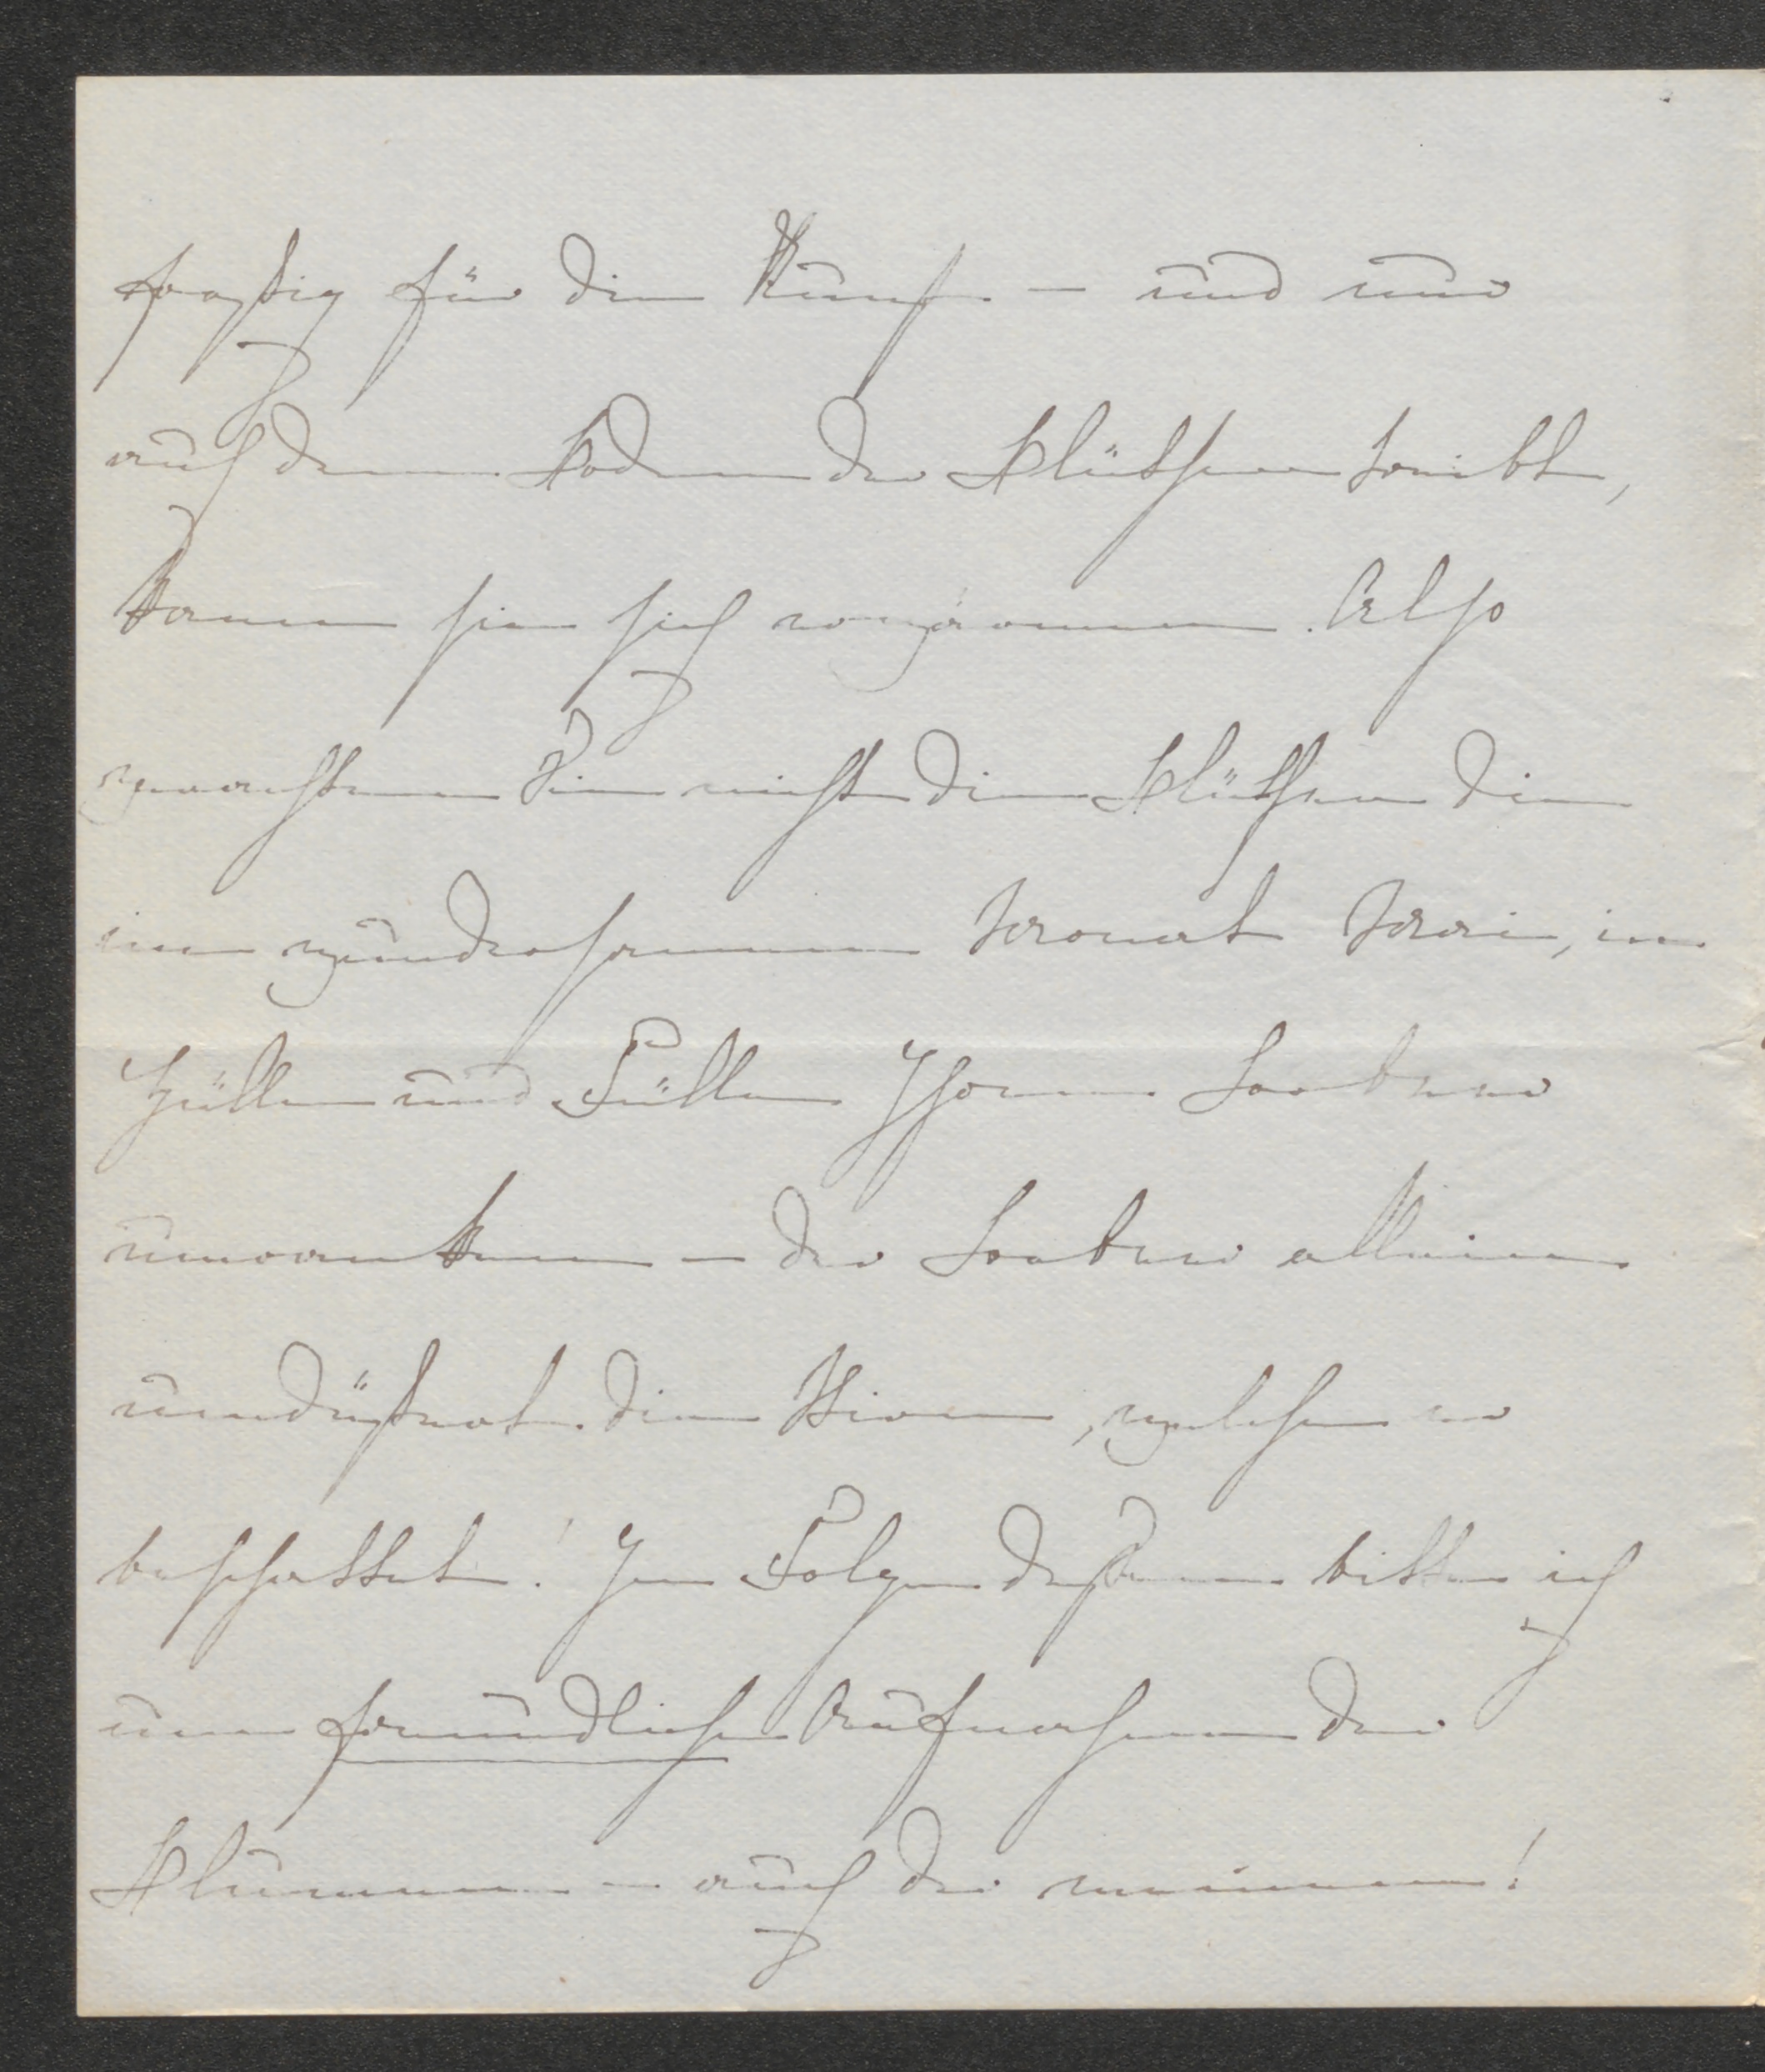 frostig für die Kunst – und nur
auf dem Boden der Blüthen treibt,
kann sie sich erwärmen. Also
verachten Sie nicht die Blüthen die
im wundersamen Monat Mai, in
Hülle und Fülle Ihren Lorbeer
umranken – der Lorbeer allein
umdüstert die Stirne, welche er
beschattet! In Folge dessen bitte ich
um freundliche Aufnahme der
Blumen – auch der meinen!